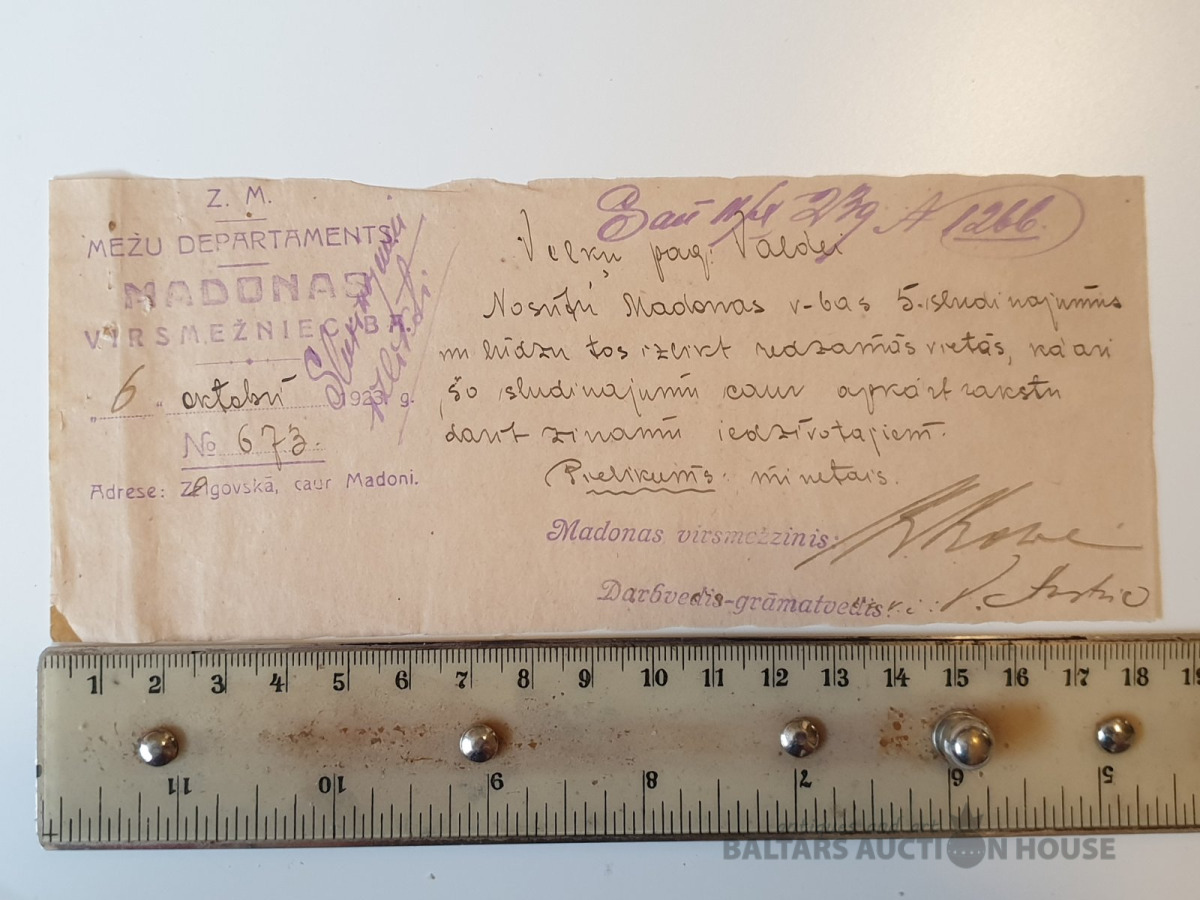 Z. M.
MEŽU DEPARTAMENTS.
MADONAS
VIRSMEŽNIECĪBA.
„ 6 „ oktobrī 1923 g.
№ 673.
Adrese: Zelgovskā, caur Madoni.
Saņ 23g № 1266.
Veļķu pag. Valdei
Nosūtu Madonas v-bas 5. sludinajumus
un lūdzu tos izlikt redzamās vietās, kā arī
šo sludinajumu caur apkārt rakstu
darīt zinamu iedzīvotajiem.
Pielikumā: minetais.
Madonas virsmežzinis:
Darbvedis-grāmatvedis: v. i.:
1 2 3 4 5 6 7 8 9 10 11 12 13 14 15 16 17 18 19
11 10 9 8 7 6 5
BALTARS AUCTION HOUSE